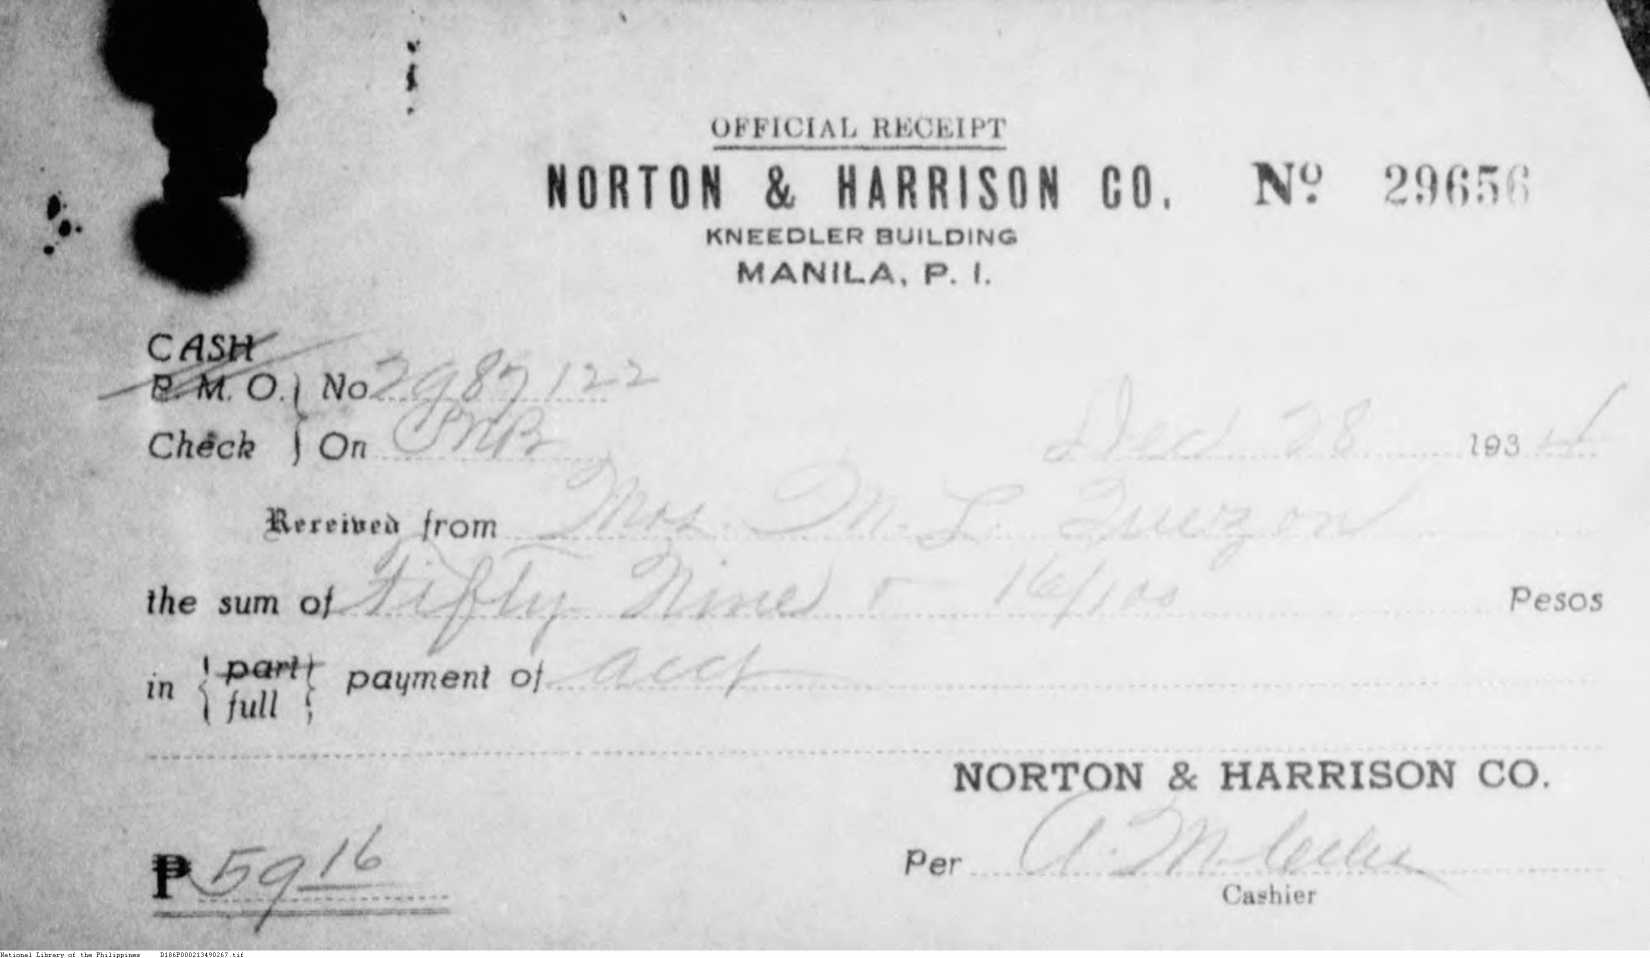 OFFICIAL RECEIPT
NORTON & HARRISON CO. Nº 29656
KNEEDLER BUILDING
MANILA, P. I.
CASH
P. M. O. } No 2987122
Check } On PNB Dec 28 1934
Received from Mrs. M. L. Quezon
the sum of Fifty Nine & 16/100 Pesos
in { part full } payment of acct
NORTON & HARRISON CO.
₱ 59 16 Per A. M.
Cashier
National Library of the Philippines D186P000213490267.tif